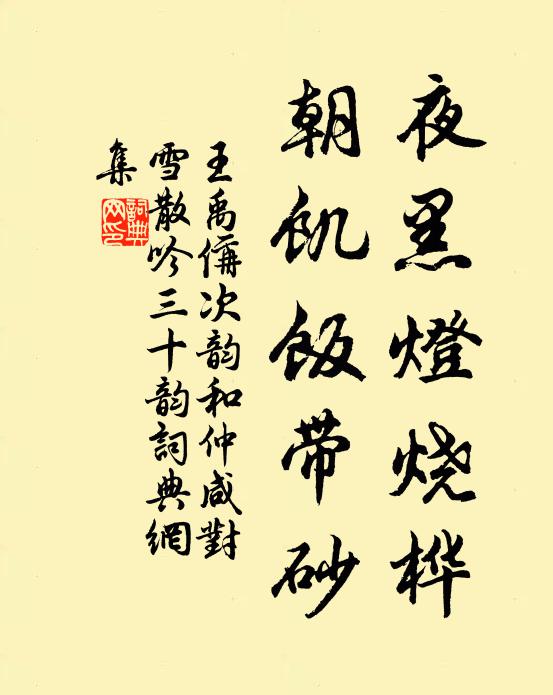 夜黑燈烧桦
朝飢飯带砂
王禹偁次韵和仲咸對
雪散吟三十韵詞典網
集
詞典
网印